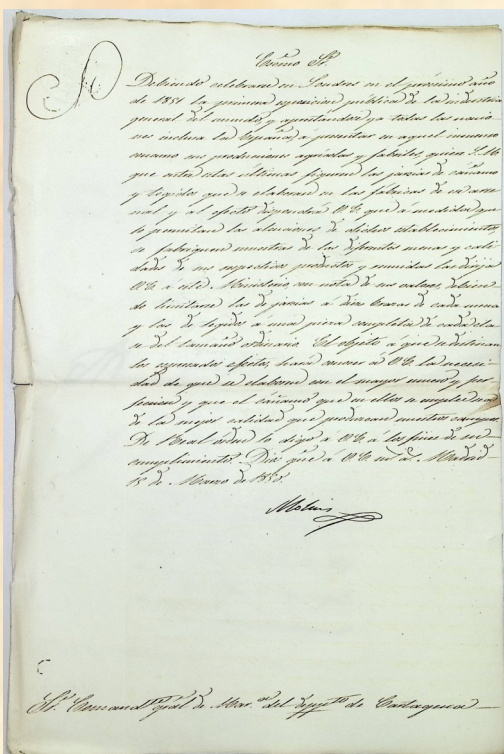 Excmo Sr.
Debiendo celebrarse en Londres en el próximo año
de 1851 la primera esposicion publica de la industria
general del mundo, y aprestandose ya todas las nacio
nes inclusa la Española, á presentar en aquel inmenso
concurso sus producciones agricolas y fabriles, quiere S. M.
que entre estas ultimas figuren las jarcias de cáñamo
y tegidos que se elaboran en las fábricas de ese arse
nal y al efecto dispondrá V.E. que á medida que
lo permitan las atenciones de dichos establecimientos,
se fabriquen muestras de las diferentes menas y cali
dades de sus respectivos productos y reunidas las dirija
V.E. á este Ministerio, con nota de sus valores, debien
do limitarse las de jarcias á diez brazas de cada mena
y las de tegidos á una pieza completa de cada cla
se del tamaño ordinario. El objeto á que se destinan
los espresados efectos, hará conocer á V.E. la necesi
dad de que se elaboren con el mayor esmero y per
feccion y que el cáñamo que en ellos se emplee sea
de la mejor calidad que produzcan nuestros campos.
De Real orden lo digo á V.E. á los fines de su
cumplimiento. Dios gue á V.E. ms as. Madrid
18 de Marzo de 1850.
Molins
Sr. Comandte gral de Mar.na del depto de Cartagena